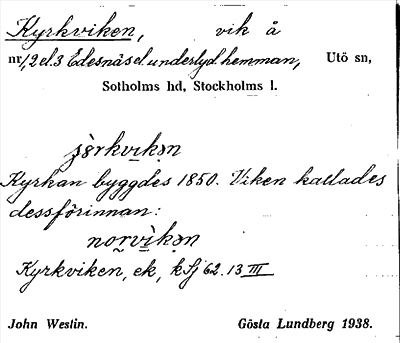 Kyrkviken, vik å
nr 1, 2 el. 3 Edesnäs el. underlyd. hemman, Utö sn,
Sotholms hd, Stockholms l.
Kyrkan byggdes 1850. Viken kallades
dessförinnan:
norvikən
Kyrkviken, ek, k Sj 62. 13 III
John Westin. Gösta Lundberg 1938.